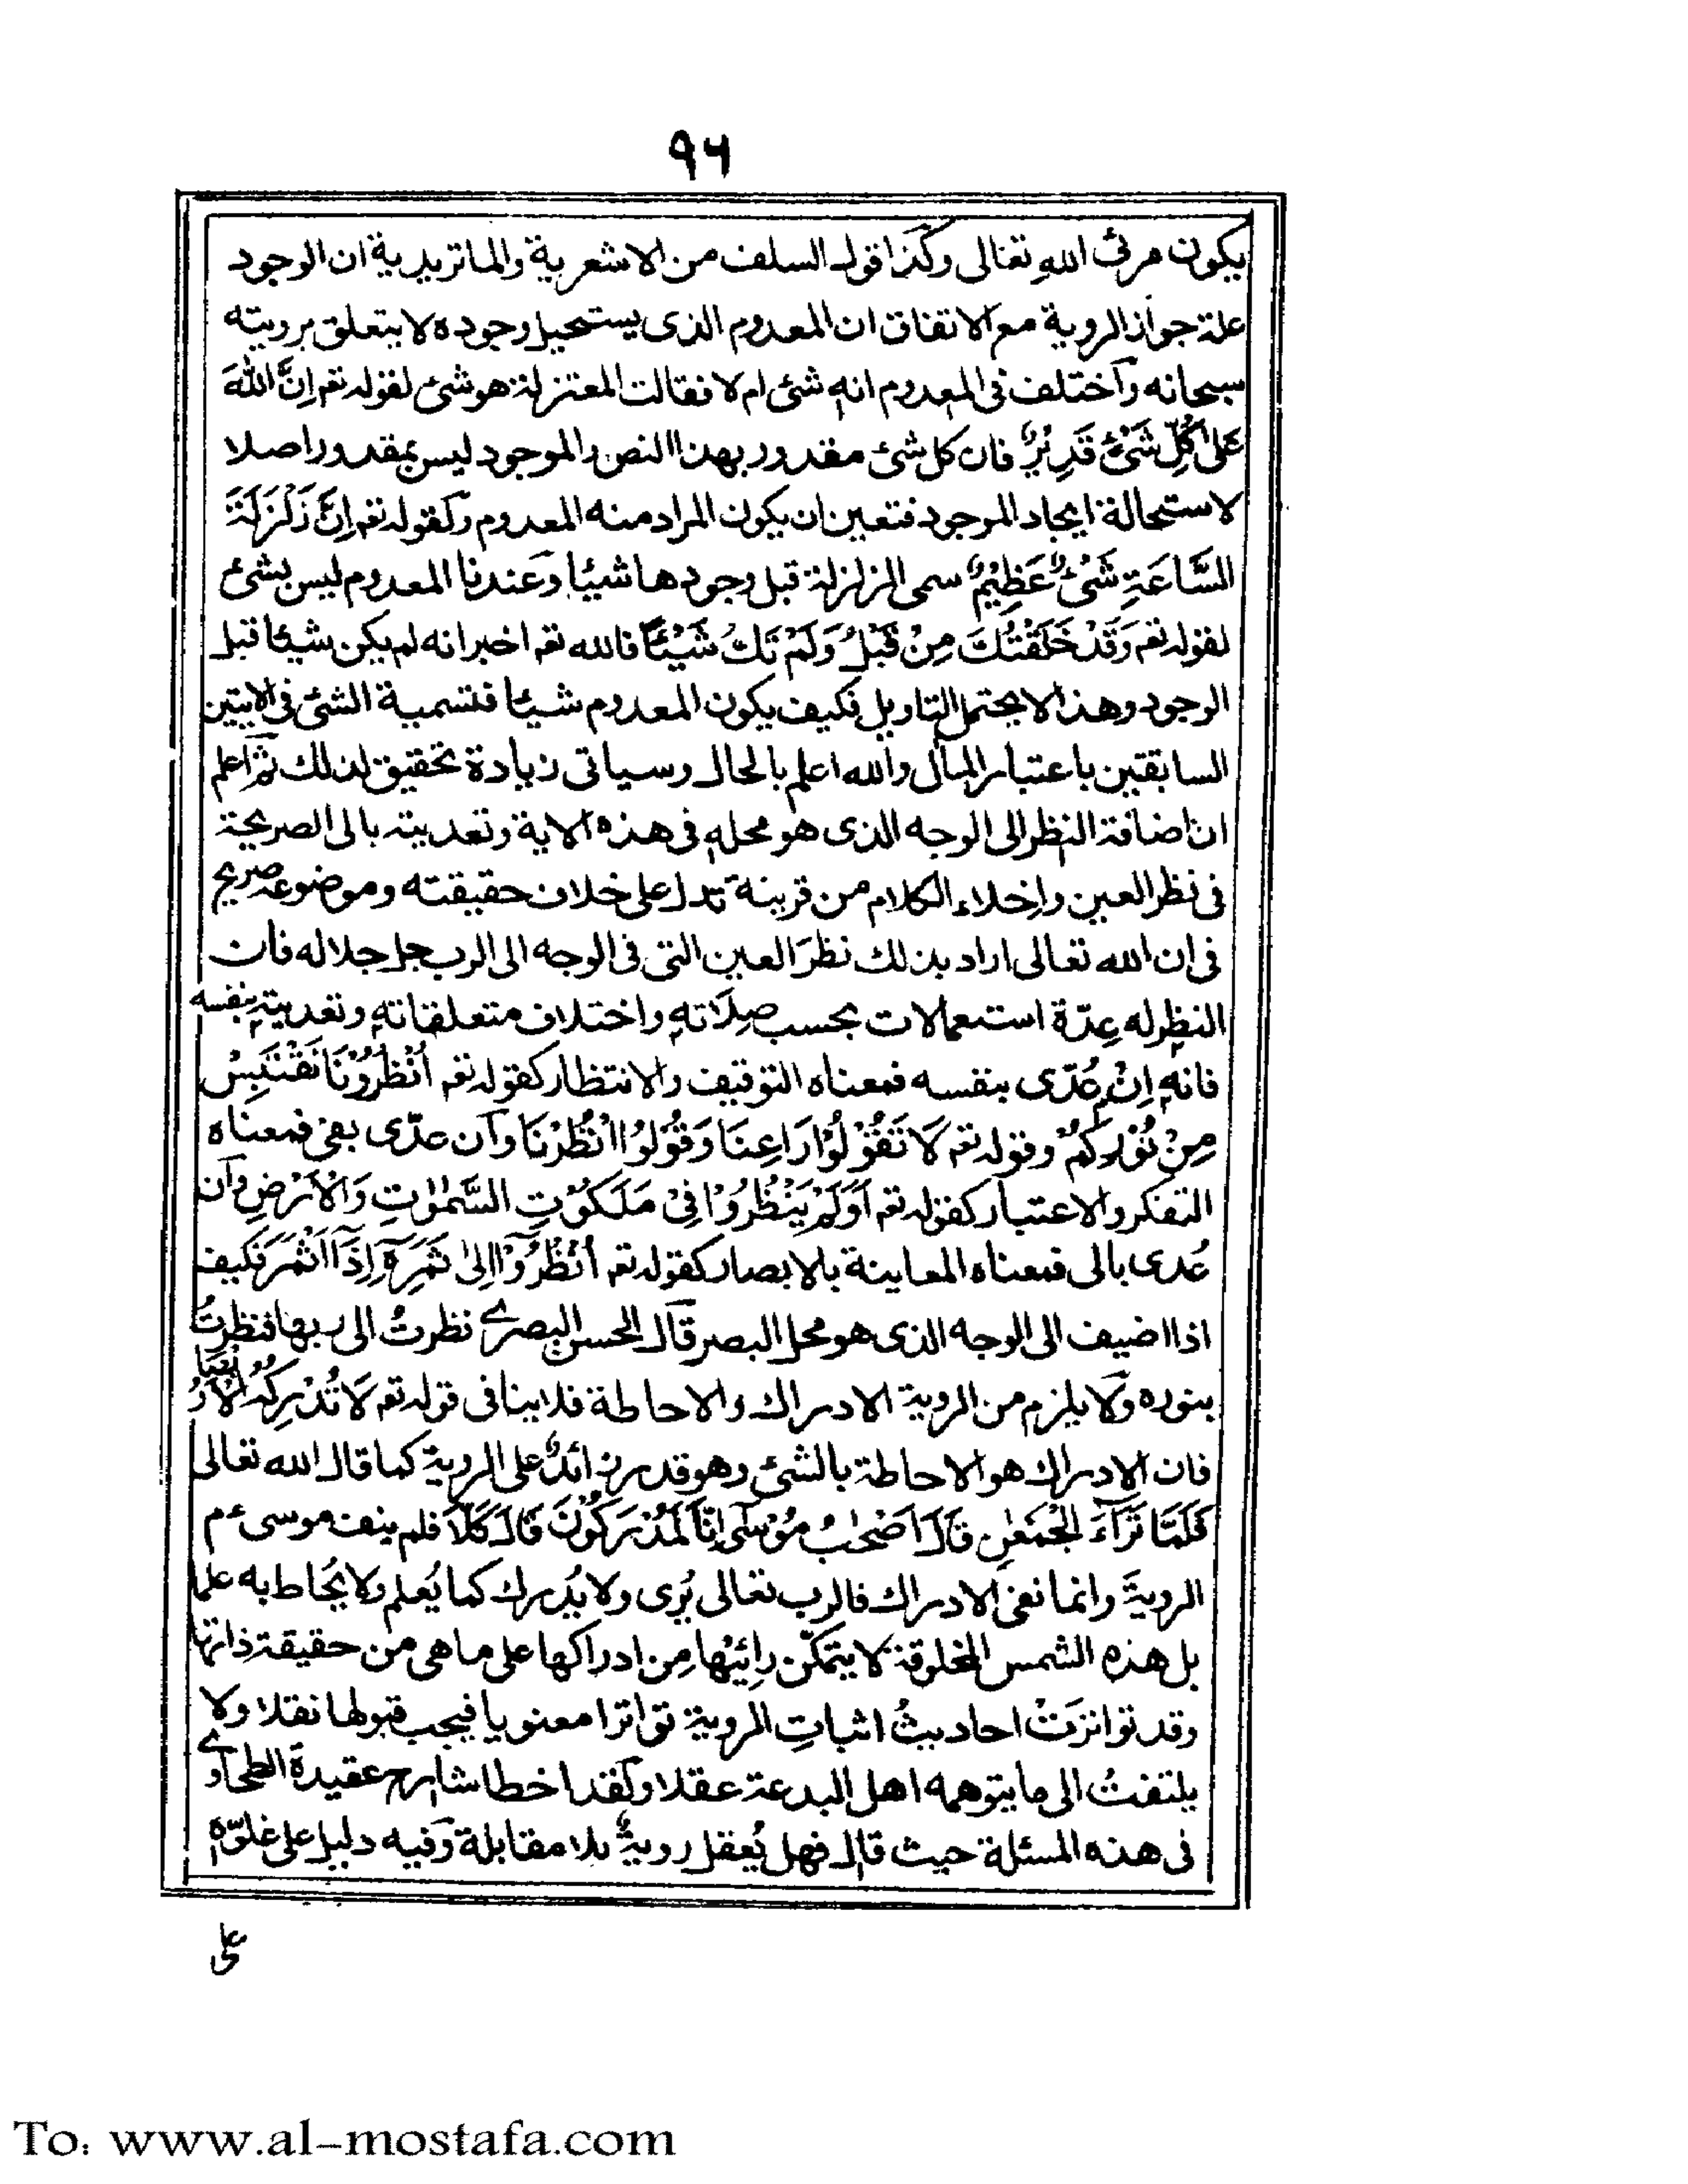 ۹۶
يكون مرئى الله تعالى وكذا قول السلف من الاشعرية والماتريدية ان الوجود
علة جواز الروية مع الاتفاق ان المعدوم الذى يستحيل وجوده لا يتعلق برويته
سبحانه واختلف فى المعدوم انه شئ ام لا فقالت المعتزلة هو شئ لقوله تعم اِنَّ اللهَ
عَلٰى كُلِّ شَيْءٍ قَدِيْرٌ فان كل شئ مقدور بهذا النص والموجود ليس بمقدور اصلا
لاستحالة ايجاد الموجود فتعين ان يكون المراد منه المعدوم وكقوله تعم اِنَّ زَلْزَلَةَ
السَّاعَةِ شَيْءٌ عَظِيْمٌ سمى الزلزلة قبل وجودها شيئا وعندنا المعدوم ليس بشئ
لقوله تعم وَقَدْ خَلَقْتُكَ مِنْ قَبْلُ وَلَمْ تَكُ شَيْئًا فالله تعم اخبر انه لم يكن شيئا قبل
الوجود وهذا لا يحتمل التاويل فكيف يكون المعدوم شيئا فتسمية الشئ فى الايتين
السابقتين باعتبار المآل والله اعلم بالحال وسياتى زيادة تحقيق لذلك ثم اعلم
ان اضافة النظر الى الوجه الذى هو محله فى هذه الاية وتعديته بالى الصريحة
فى نظر العين واخلاء الكلام من قرينة تدل على خلاف حقيقته وموضوعه صريح
فى ان الله تعالى اراد بذلك نظرَ العين التى فى الوجه الى الرب جل جلاله فان
النظر له عِدّة استعمالات بحسب صِلَاته واختلاف متعلقاته وتعديته بنفسه
فانه اِنْ عُدّى بنفسه فمعناه التوقيف والانتظار كقوله تعم اُنْظُرُوْنَا نَقْتَبِسْ
مِنْ نُوْرِكُمْ وقوله تعم لَا تَقُوْلُوْا رَاعِنَا وَقُوْلُوا انْظُرْنَا وان عدّى بفى فمعناه
التفكر والاعتبار كقوله تعم اَوَلَمْ يَنْظُرُوْا فِىْ مَلَكُوْتِ السَّمٰوٰتِ وَالْاَرْضِ وان
عُدى بالى فمعناه المعاينة بالابصار كقوله تعم اُنْظُرُوْٓا اِلٰى ثَمَرِهٖٓ اِذَٓا اَثْمَرَ فكيف
اذا اضيف الى الوجه الذى هو محل البصر قال الحسن البصرى نظرتُ الى ربها فنظرتُ
بنوره ولا يلزم من الروية الادراك والاحاطة فلا ينافى قوله تعم لَا تُدْرِكُهُ الْاَبْصَارُ
فان الادراك هو الاحاطة بالشئ وهو قدر زائدٌ على الروية كما قال الله تعالى
فَلَمَّا تَرَآءَ الْجَمْعٰنِ قَالَ اَصْحٰبُ مُوْسٰٓى اِنَّا لَمُدْرَكُوْنَ قَالَ كَلَّا فلم ينف موسى ء م
الرويةَ وانما نفى الادراك فالرب تعالى يُرى ولا يُدرك كما يُعلم ولا يُحَاط به علما
بل هذه الشمس المخلوقة لا يتمكّن رائيْها مِن ادراكها على ما هى من حقيقة ذاتها
وقد تواترتْ احاديثُ اثباتِ الروية تواترا معنويا فيجب قبولها نقلا ولا
يلتفتُ الى ما يتوهمه اهل البدعة عقلا ولقد اخطا شارح عقيدة الطحاوى
فى هذه المسئلة حيث قال فهل يُعقل رويةٌ بلا مقابلة وفيه دليل على علوّه
على
To: www.al-mostafa.com